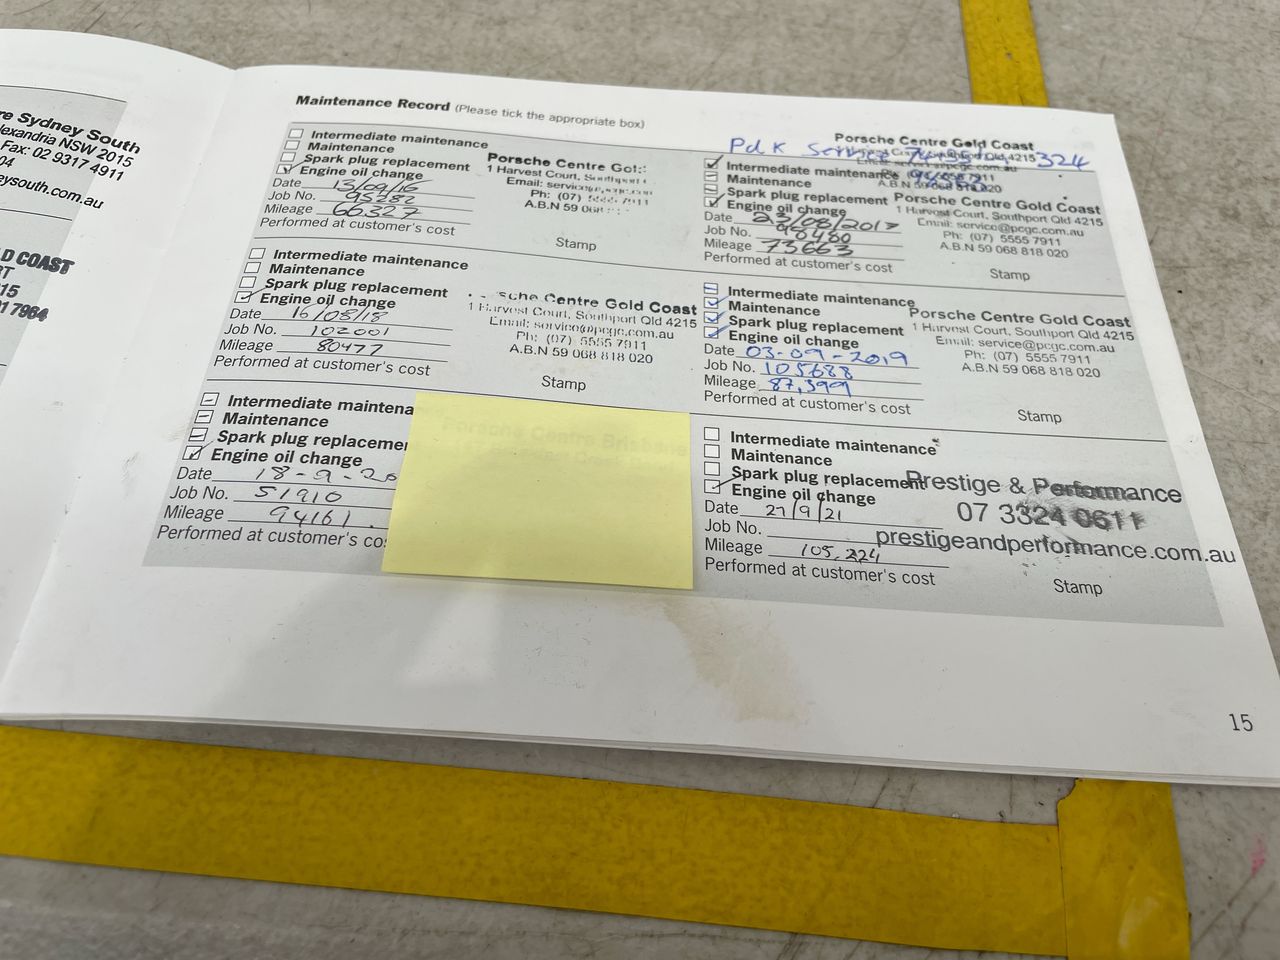 re Sydney South
lexandria NSW 2015
Fax: 02 9317 4911
04
eysouth.com.au
LD COAST
RT
15
01 7964
Maintenance Record (Please tick the appropriate box)
Intermediate maintenance
Maintenance
Spark plug replacement
Engine oil change
Date 13/09/16
Job No. 95282
Mileage 66327
Performed at customer's cost
Porsche Centre Gol
1 Harvest Court, Southport
Email: service@pcgc.com
Ph: (07) 5555 7911
A.B.N 59 068
Stamp
Pdk Service 324
Porsche Centre Gold Coast
Qld 4215
A.B.N 59 068 818 020
Intermediate maintenance
Maintenance
Spark plug replacement
Engine oil change
Date 23/08/2017
Job No. 98480
Mileage 73663
Performed at customer's cost
Porsche Centre Gold Coast
1 Harvest Court, Southport Qld 4215
Email: service@pcgc.com.au
Ph: (07) 5555 7911
A.B.N 59 068 818 020
Stamp
Intermediate maintenance
Maintenance
Spark plug replacement
Engine oil change
Date 16/08/18
Job No. 102001
Mileage 80477
Performed at customer's cost
sche Centre Gold Coast
1 Harvest Court, Southport Qld 4215
Email: service@pcgc.com.au
Ph: (07) 5555 7911
A.B.N 59 068 818 020
Stamp
Intermediate maintenance
Maintenance
Spark plug replacement
Engine oil change
Date 03-09-2019
Job No. 105688
Mileage 87,399
Performed at customer's cost
Porsche Centre Gold Coast
1 Harvest Court, Southport Qld 4215
Email: service@pcgc.com.au
Ph: (07) 5555 7911
A.B.N 59 068 818 020
Stamp
Intermediate maintena
Maintenance
Spark plug replacemer
Engine oil change
Date 18-9-20
Job No. 51910
Mileage 94161.
Performed at customer's co
Porsche Centre Brisbane
Intermediate maintenance
Maintenance
Spark plug replacement
Engine oil change
Date 27/9/21
Job No.
Mileage 105,224
Performed at customer's cost
Prestige & Performance
07 3324 0611
prestigeandperformance.com.au
Stamp
15